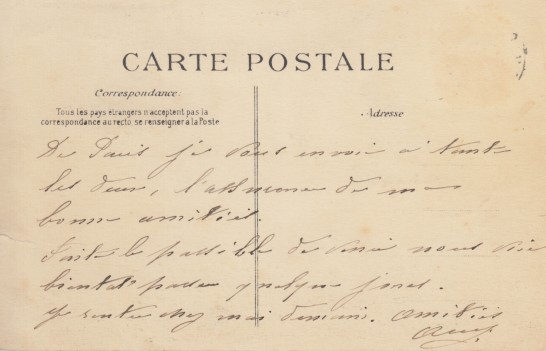 CARTE POSTALE
Correspondance:
Tous les pays étrangers n'acceptent pas la
correspondance au recto, se renseigner à la Poste
Adresse
De Paris je vous envoie à toute
les deux, l'assurance de me
bonne amitiés.
Faite le possible de venir nous voir
bientôt passer quelque jours.
Je rentre chez moi demain. Amitiés